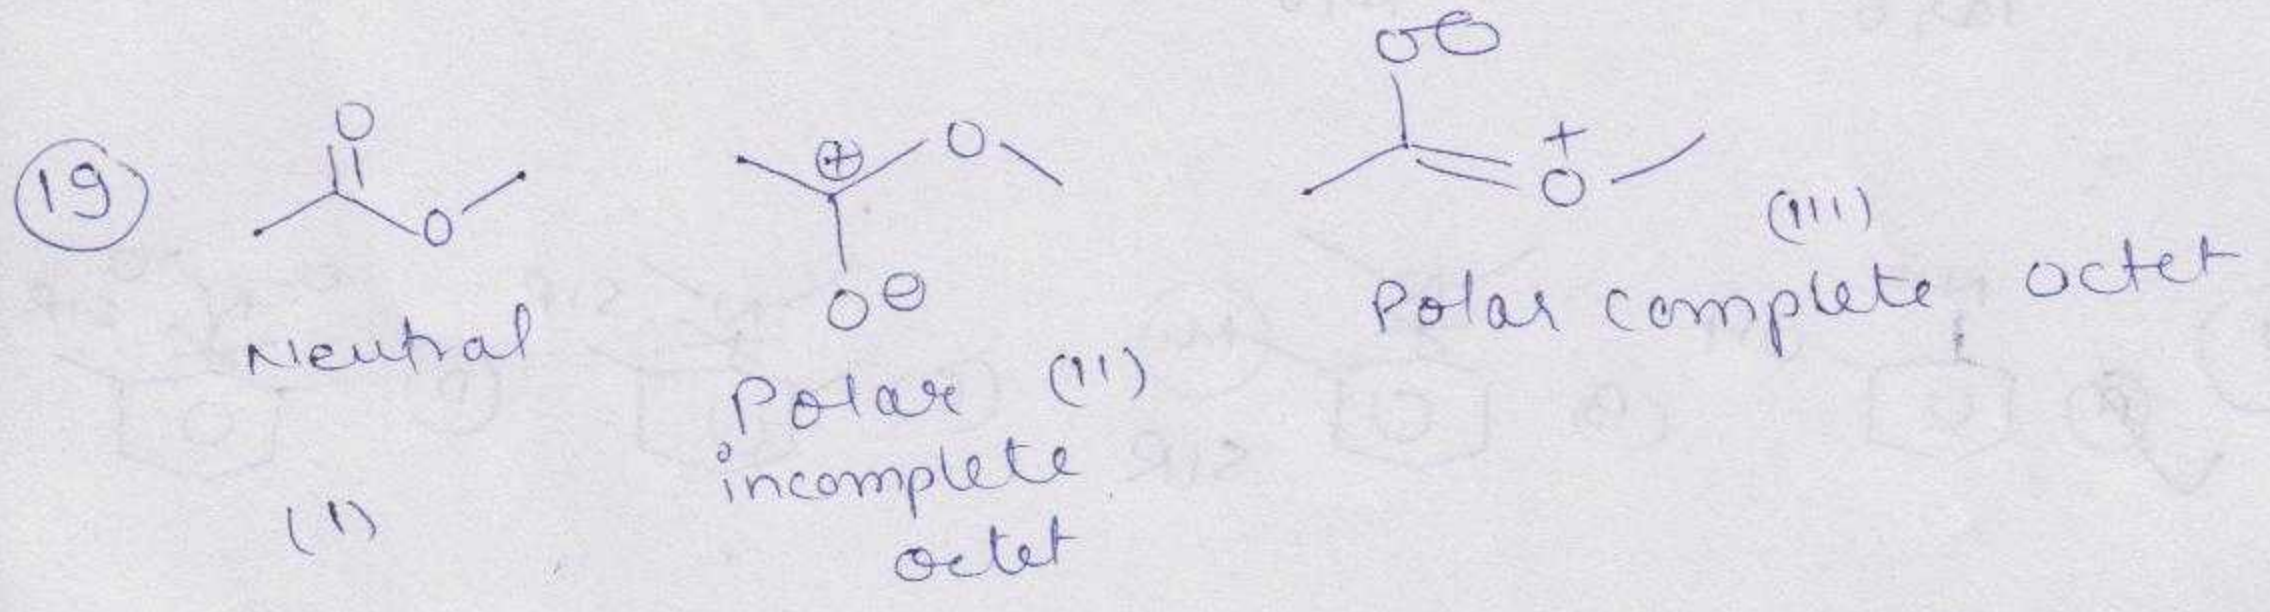 19
O
O
Neutral
(I)
⊕
O
O⊖
Polar (II)
incomplete
octet
O⊖
+
O
(III)
Polar complete octet